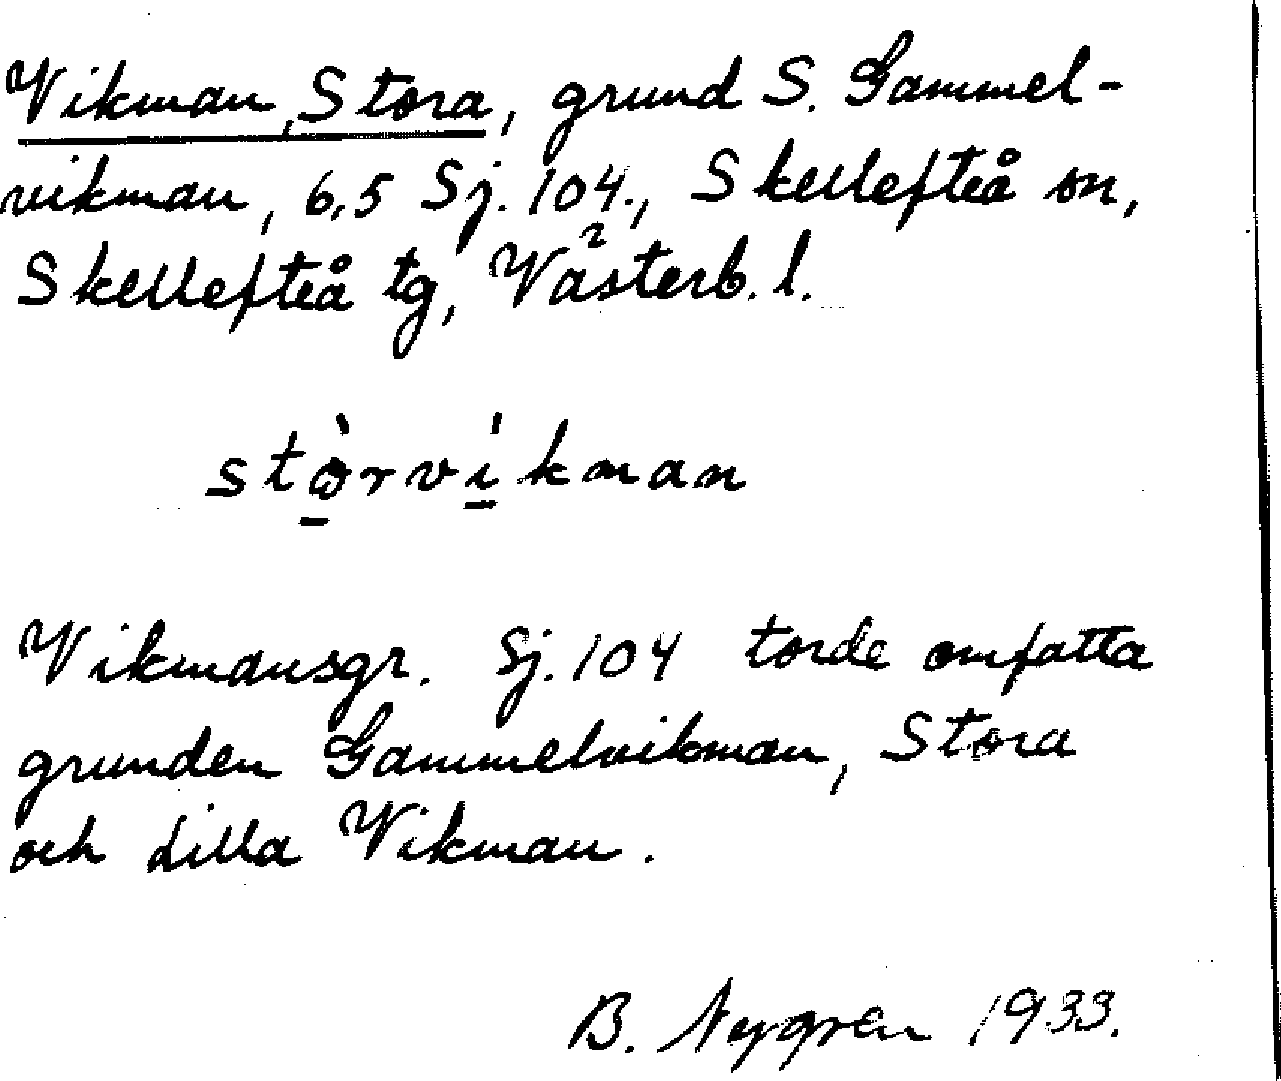 Vikman, Stora, grund S. Gammel-
vikman, 6,5 Sj. 104., Skellefteå sn,
Skellefteå tg, Västerb. l.
stòrvìkman
Vikmansgr. Sj. 104 torde omfatta
grunden Gammelvikman, Stora
och Lilla Vikman.
B. Nygren 1933.